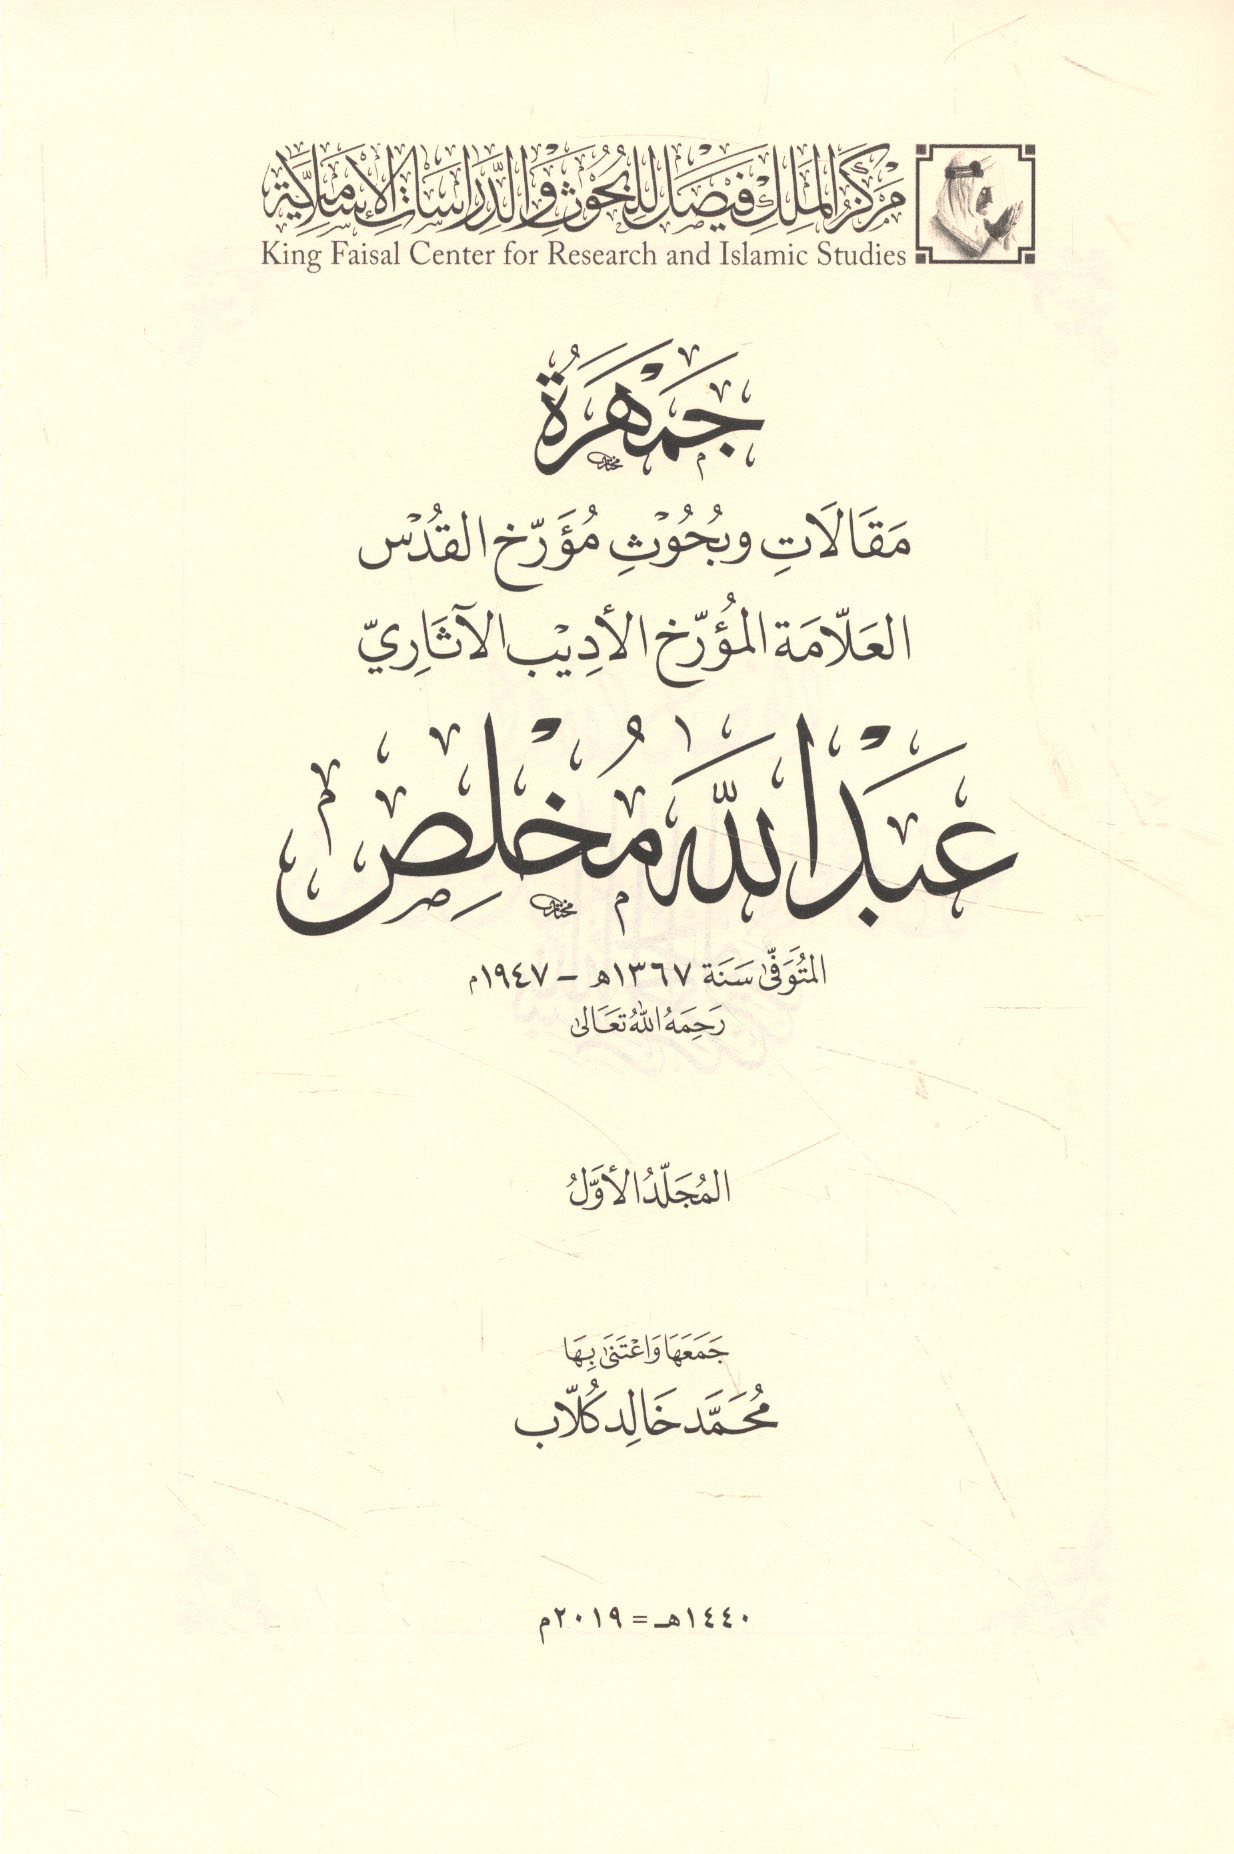 مَركَزُ المَلِك فَيصَل لِلبُحُوثِ وَالدِّرَاسَاتِ الإِسْلَامِيَّة
King Faisal Center for Research and Islamic Studies
جَمْهَرَةُ
مَقَالَاتِ وبُحُوْثِ مُؤَرّخ القُدْس
العَلّامَة المُؤرّخ الأَدِيْب الآثَارِيّ
عَبْد الله مُخْلِص
المُتَوَفّى سَنَة ١٣٦٧هـ – ١٩٤٧م
رَحِمَهُ اللهُ تَعَالى
المُجَلّدُ الأَوَّلُ
جَمَعَهَا وَاعْتَنَى بِهَا
مُحَمَّد خَالِد كُلّاب
١٤٤٠هـ = ٢٠١٩م